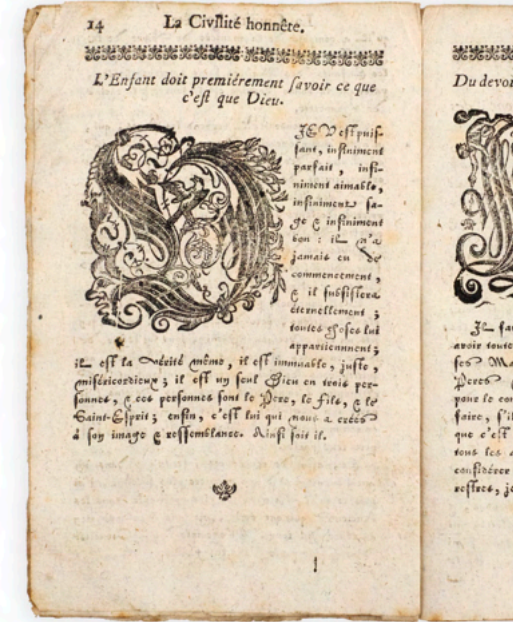 14 La Civilité honnête.
L'Enfant doit premiérement savoir ce que
c'est que Dieu.
IEU est puis-
sant, infiniment
parfait, infi-
niment aimable,
infiniment sa-
ge & infiniment
bon : il n'a
jamais eu de
commencement,
& il subsistera
éternellement ;
toutes choses lui
appartiennent ;
il est la vérité même, il est immuable, juste,
miséricordieux ; il est un seul Dieu en trois per-
sonnes, & ces personnes sont le Pere, le Fils, & le
Saint-Esprit ; enfin, c'est lui qui nous a créés
à son image & ressemblance. Ainsi soit il.
Du devoi
Il fau
avoir toute
ses Ma
Peres
pour le con
faire, s'il
que c'est
tous les
considérer
restres, je